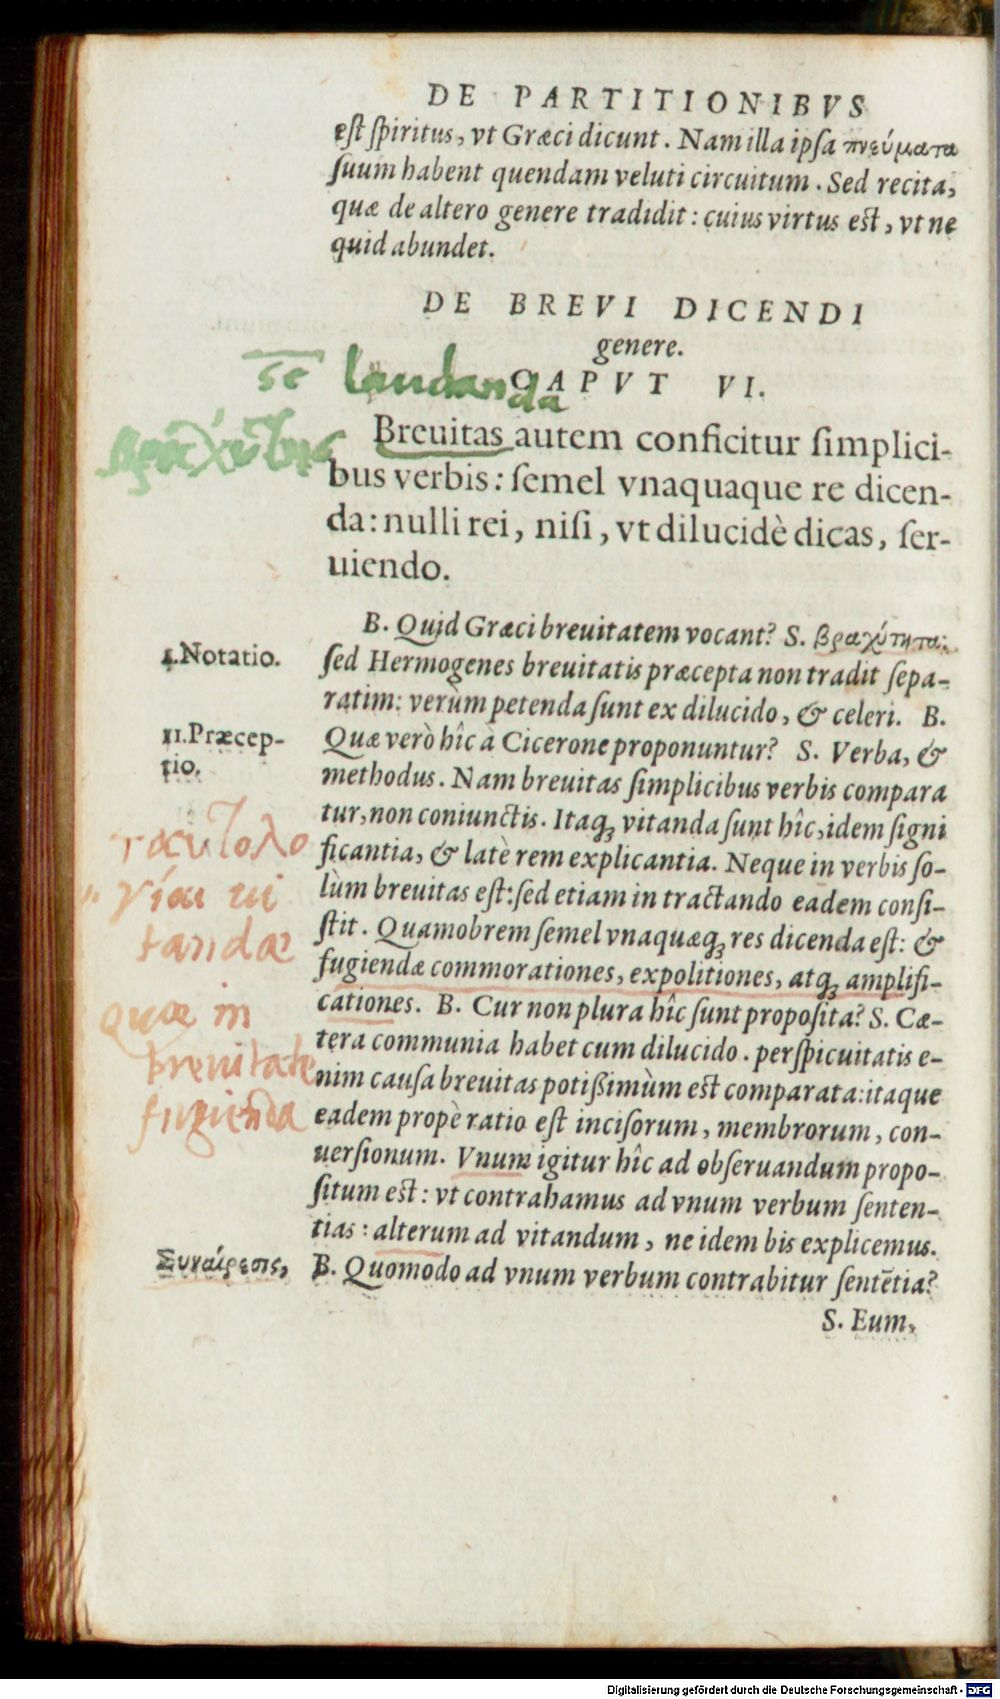 DE PARTITIONIBVS
est spiritus, vt Græci dicunt. Nam illa ipsa πνεύματα
suum habent quendam veluti circuitum. Sed recita,
quæ de altero genere tradidit: cuius virtus est, vt ne
quid abundet.
DE BREVI DICENDI
genere.
CAPVT VI.
laudanda
Breuitas autem conficitur simplici-
bus verbis: semel vnaquaque re dicen-
da: nulli rei, nisi, vt dilucidè dicas, ser-
uiendo.
B. Quid Græci breuitatem vocant? S. βραχύτητα:
1.Notatio.
sed Hermogenes breuitatis præcepta non tradit sepa-
ratim: verùm petenda sunt ex dilucido, & celeri. B.
11.Præcep-
tio.
Quæ verò hîc à Cicerone proponuntur? S. Verba, &
methodus. Nam breuitas simplicibus verbis compara
tur, non coniunctis. Itaq; vitanda sunt hîc, idem signi
ficantia, & latè rem explicantia. Neque in verbis so-
lùm breuitas est: sed etiam in tractando eadem consi-
stit. Quamobrem semel vnaquæq; res dicenda est: &
fugiendæ commorationes, expolitiones, atq; amplifi-
cationes. B. Cur non plura hîc sunt proposita? S. Cæ-
tera communia habet cum dilucido. perspicuitatis e-
nim causa breuitas potißimùm est comparata: itaque
eadem propè ratio est incisorum, membrorum, con-
uersionum. Vnum igitur hîc ad obseruandum propo-
situm est: vt contrahamus ad vnum verbum senten-
tias: alterum ad vitandum, ne idem bis explicemus.
ταυτολο
γίαι ui
tandæ
quæ in
breuitate
fugienda
Συναίρεσις,
B. Quomodo ad vnum verbum contrahitur sentētia?
S. Eum,
Digitalisierung gefördert durch die Deutsche Forschungsgemeinschaft - DFG